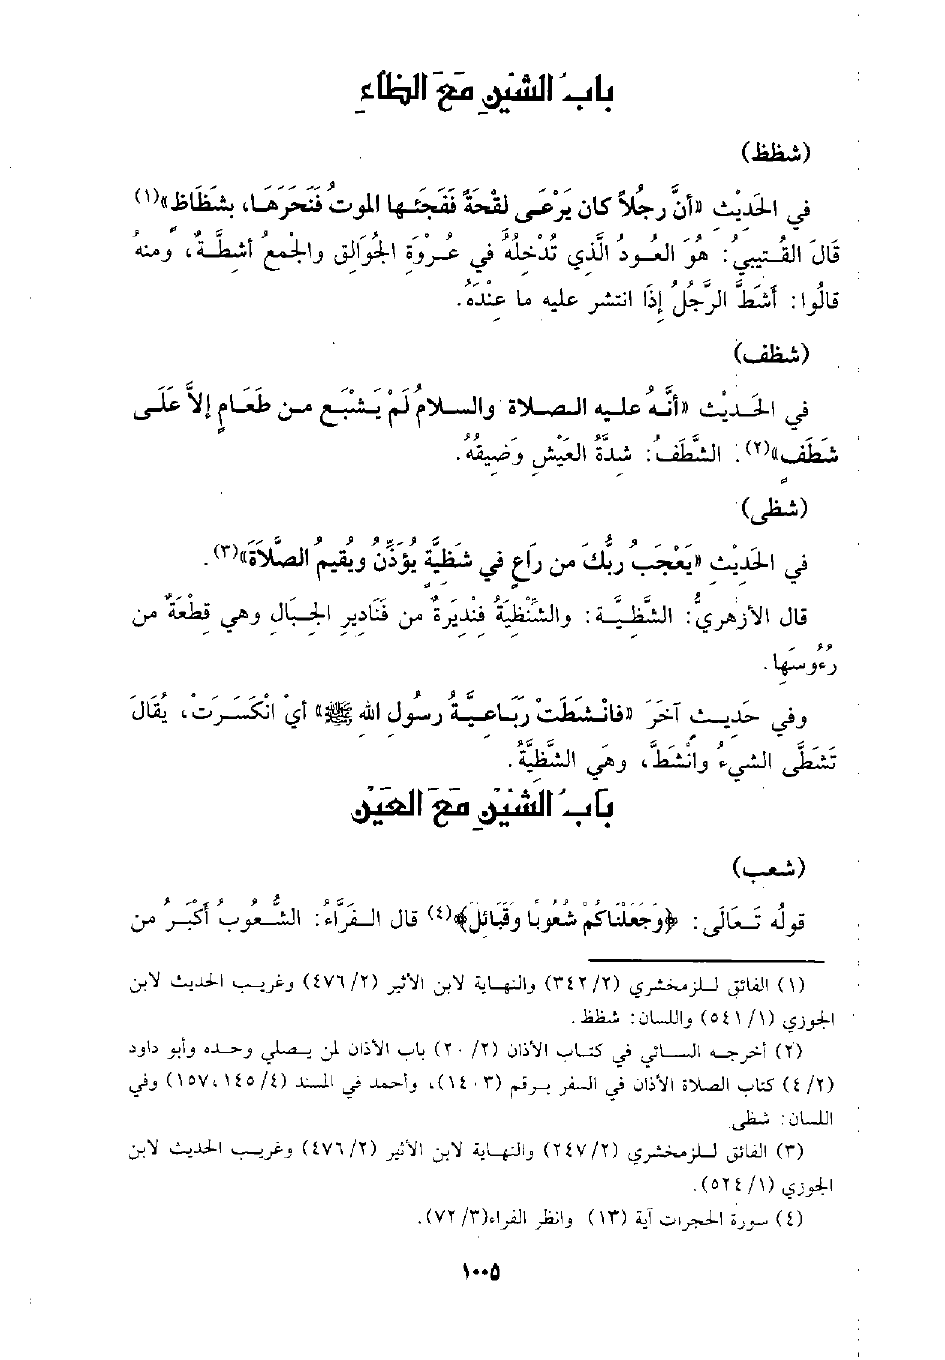 بابُ الشيْنِ مَعَ الظاءِ
(شظظ)
في الحَديْثِ «أنَّ رجُلاً كان يَرْعَى لقْحَةً فَفَجَئَها الموتُ فَنَحَرَهَا، بشظَاظٍ»(١)
قَالَ القُتيبيُّ: هُوَ العُودُ الَّذي تُدْخلُهُ في عُرْوَةِ الجُوَالِقِ والجْمعُ أشظَّةٌ، ومنهُ
قالُوا: أَشَظَّ الرَّجُلُ إذَا انتشر عليه ما عِنْدَهُ.
(شظف)
في الحَديْث «أنَّهُ عليه الصلاة والسلامُ لَمْ يَشبَع من طَعَامٍ إلاَّ عَلَى
شَظَفٍ»(٢). الشَّظَفُ: شدَّةُ العَيْشِ وَضِيقُهُ.
(شظي)
في الحَديْثِ «يَعْجَبُ ربُّكَ من رَاعٍ في شَظيَّةٍ يُؤَذِّنُ ويُقيمُ الصَّلاَةَ»(٣).
قال الأزهريُّ: الشَّظيَّة: والشِّنْظيَةُ فنْديرَةٌ من فَنَاديرِ الجبَالِ وهي قطْعَةٌ من
رُءُوسهَا.
وفي حَديث آخَرَ «فانْشظَتْ رَبَاعيَةُ رسُولِ الله ﷺ» أيْ انْكَسَرَتْ، يُقَالَ
تَشَظَّى الشيءُ وانْشظَّ، وهَي الشَّظيَّةُ.
بابُ الشيْنِ مَعَ العَيْن
(شعب)
قولُه تَعَالَى: ﴿وَجَعَلْنَاكُمْ شُعُوبًا وَقَبَائلَ﴾(٤) قال الفَرَّاءُ: الشُّعُوبُ أكْبَرُ من
(١) الفائق للزمخشري (٣٤٢/٢) والنهاية لابن الأثير (٤٧٦/٢) وغريب الحديث لابن
الجوزي (٥٤١/١) واللسان: شظظ.
(٢) أخرجه النسائي في كتاب الأذان (٢٠/٢) باب الأذان لمن يصلي وحده وأبو داود
(٤/٢) كتاب الصلاة الأذان في السفر برقم (١٤٠٣)، وأحمد في المسند (١٥٧،١٤٥/٤) وفي
اللسان: شظي
(٣) الفائق للزمخشري (٢٤٧/٢) والنهاية لابن الأثير (٤٧٦/٢) وغريب الحديث لابن
الجوزي (٥٢٤/١).
(٤) سورة الحجرات آية (١٣) وانظر الفراء(٧٢/٣).
١٠٠٥